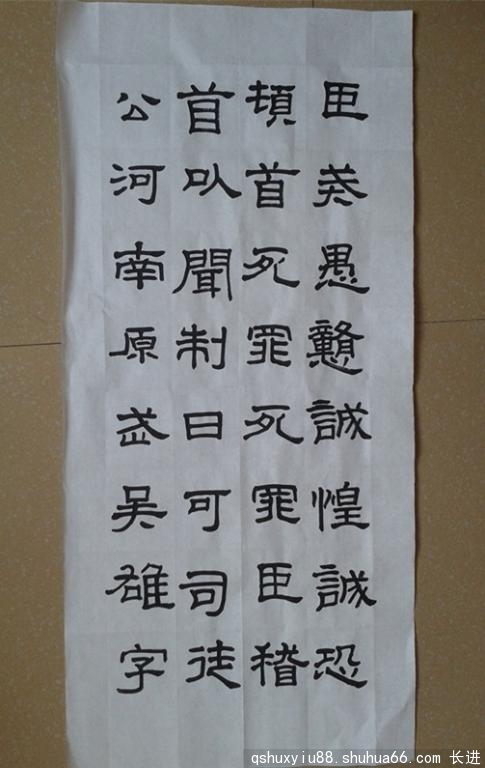 臣戒愚戇誠惶誠恐
頓首死罪死罪臣稽
首以聞制曰可司徒
公河南原武吴雄字
qshuxyiu88.shuhua66.com 长进